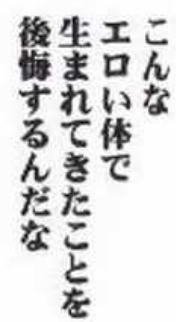 こんな
エロい体で
生まれてきたことを
後悔するんだな